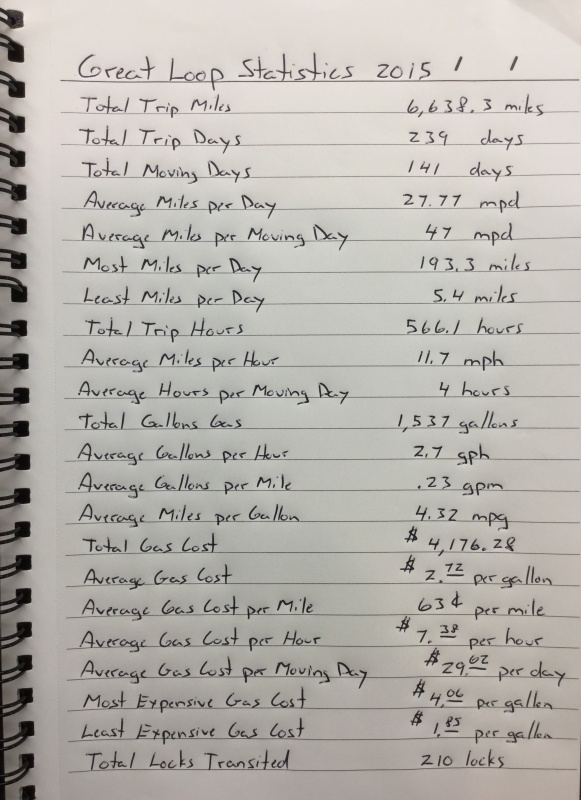 Great Loop Statistics 2015
Total Trip Miles 6,638.3 miles
Total Trip Days 239 days
Total Moving Days 141 days
Average Miles per Day 27.77 mpd
Average Miles per Moving Day 47 mpd
Most Miles per Day 193.3 miles
Least Miles per Day 5.4 miles
Total Trip Hours 566.1 hours
Average Miles per Hour 11.7 mph
Average Hours per Moving Day 4 hours
Total Gallons Gas 1,537 gallons
Average Gallons per Hour 2.7 gph
Average Gallons per Mile .23 gpm
Average Miles per Gallon 4.32 mpg
Total Gas Cost $ 4,176.28
Average Gas Cost $ 2.72 per gallon
Average Gas Cost per Mile 63¢ per mile
Average Gas Cost per Hour $ 7.38 per hour
Average Gas Cost per Moving Day $29.62 per day
Most Expensive Gas Cost $ 4.06 per gallon
Least Expensive Gas Cost $ 1.85 per gallon
Total Locks Transited 210 locks